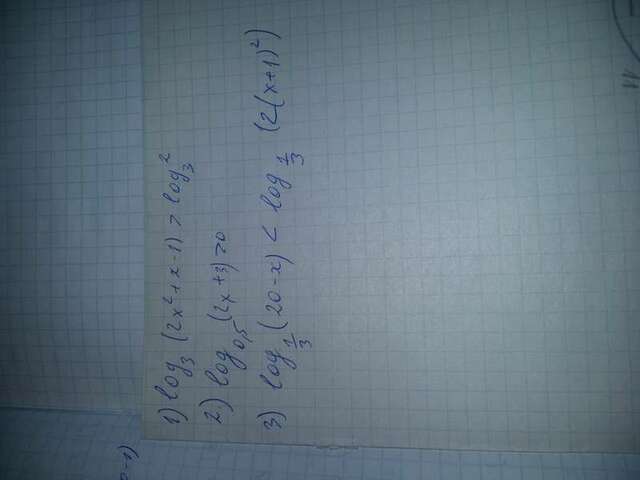 1) log₃ (2x²+x-1) > log₃ 2
2) log₀,₅ (2x+3) > 0
3) log_{1/3} (20-x) < log_{1/3} (2(x+1)²)